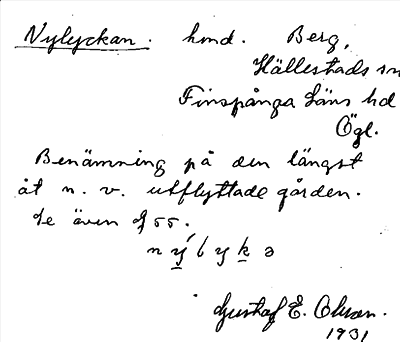 Nylyckan. hmd. Berg,
Hällestads sn
Finspånga läns hd
Ögl.
Benämning på den längst
åt n. v. utflyttade gården.
Se även
n ý l y k ə
Gustaf E. Olsson.
1931